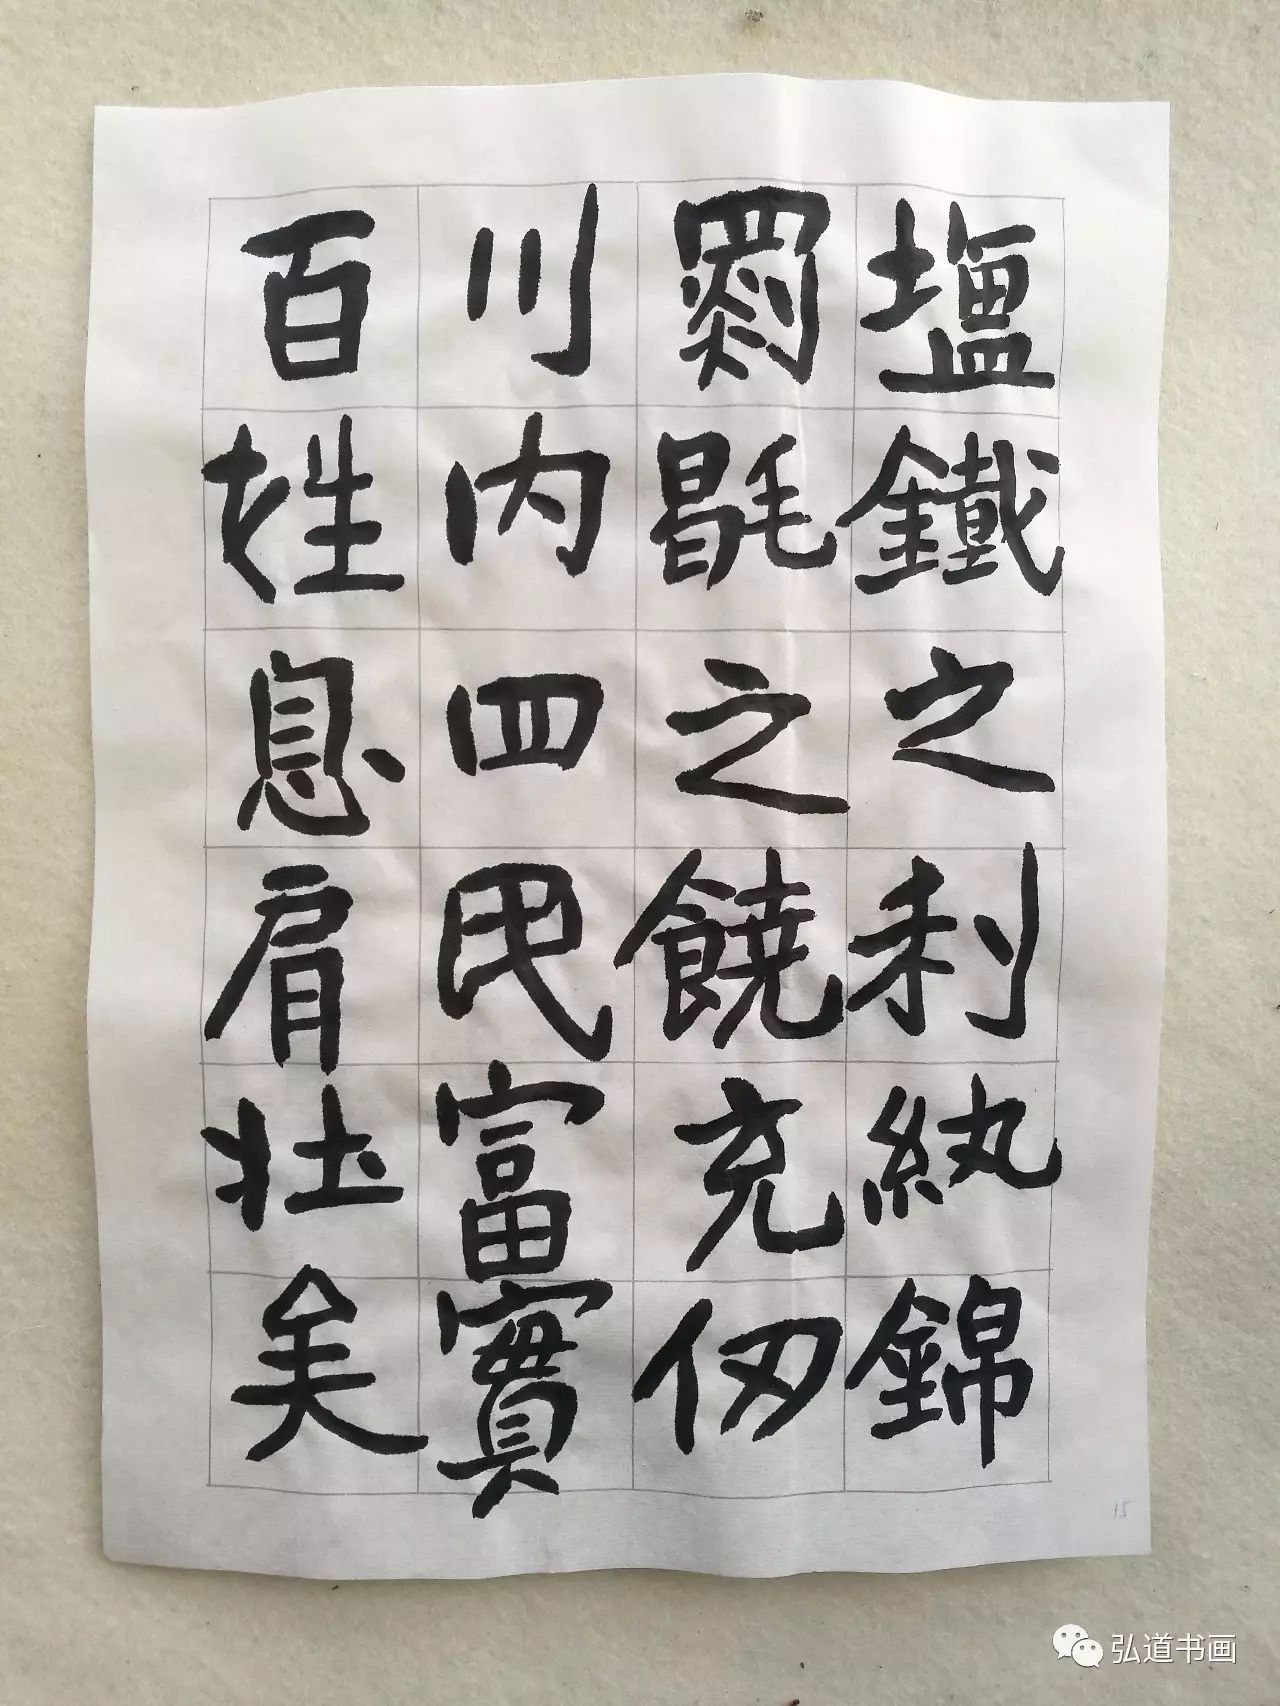 塩鐵之利紈錦
罽毼之饒充仞
川内四民富實
百姓息肩壯矣
15
弘道书画